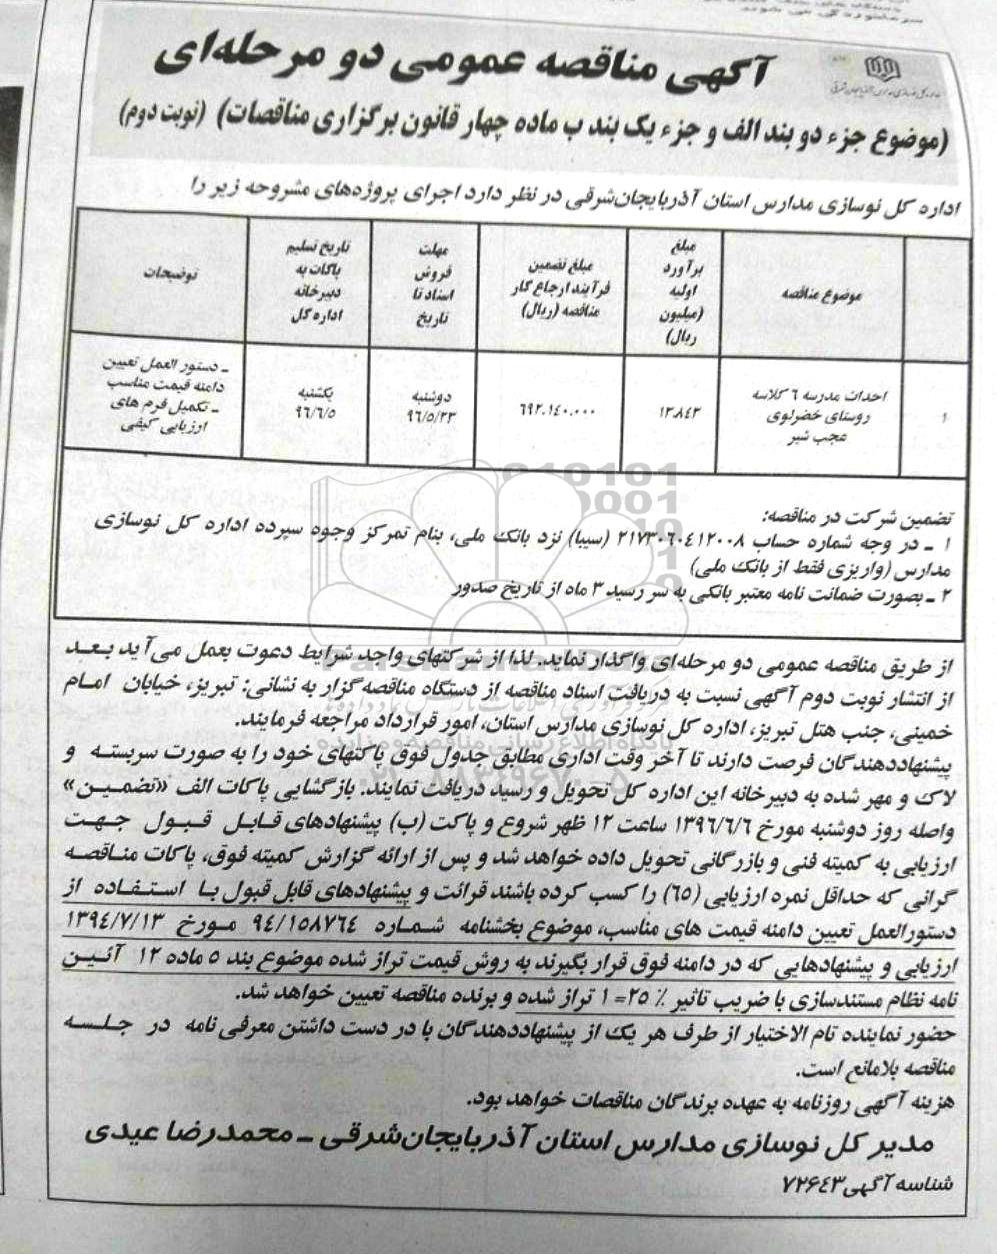 آگهی مناقصه عمومی دو مرحله‌ای
(موضوع جزء دو بند الف و جزء یک بند ب ماده چهار قانون برگزاری مناقصات) (نوبت دوم)
اداره کل نوسازی مدارس استان آذربایجان‌شرقی در نظر دارد اجرای پروژه‌های مشروحه زیر را
موضوع مناقصه
مبلغ
برآورد
اولیه
(میلیون
ریال)
مبلغ تضمین
فرآیند ارجاع کار
مناقصه (ریال)
مهلت
فروش
اسناد تا
تاریخ
تاریخ تسلیم
پاکات به
دبیرخانه
اداره کل
توضیحات
۱
احداث مدرسه ۶ کلاسه
روستای خضرلوی
عجب شیر
۱۳،۸۴۳
۶۹۲،۱۴۰،۰۰۰
دوشنبه
۹۶/۵/۲۳
یکشنبه
۹۶/۶/۵
ـ دستور العمل تعیین
دامنه قیمت مناسب
ـ تکمیل فرم های
ارزیابی کیفی
تضمین شرکت در مناقصه:
۱ ـ در وجه شماره حساب ۲۱۷۳۰۶۰۴۱۲۰۰۸ (سیبا) نزد بانک ملی، بنام تمرکز وجوه سپرده اداره کل نوسازی
مدارس (واریزی فقط از بانک ملی)
۲ ـ بصورت ضمانت نامه معتبر بانکی به سر رسید ۳ ماه از تاریخ صدور
از طریق مناقصه عمومی دو مرحله‌ای واگذار نماید. لذا از شرکتهای واجد شرایط دعوت بعمل می‌آید بعد
از انتشار نوبت دوم آگهی نسبت به دریافت اسناد مناقصه از دستگاه مناقصه‌گزار به نشانی: تبریز، خیابان امام
خمینی، جنب هتل تبریز، اداره کل نوسازی مدارس استان، امور قرارداد مراجعه فرمایند.
پیشنهاددهندگان فرصت دارند تا آخر وقت اداری مطابق جدول فوق پاکتهای خود را به صورت سربسته و
لاک و مهر شده به دبیرخانه این اداره کل تحویل و رسید دریافت نمایند. بازگشایی پاکات الف «تضمین»
واصله روز دوشنبه مورخ ۱۳۹۶/۶/۶ ساعت ۱۲ ظهر شروع و پاکت (ب) پیشنهادهای قابل قبول جهت
ارزیابی به کمیته فنی و بازرگانی تحویل داده خواهد شد و پس از ارائه گزارش کمیته فوق، پاکات مناقصه
گرانی که حداقل نمره ارزیابی (۶۵) را کسب کرده باشند قرائت و پیشنهادهای قابل قبول با استفاده از
دستورالعمل تعیین دامنه قیمت های مناسب، موضوع بخشنامه شماره ۹۴/۱۵۸۷۶۴ مورخ ۱۳۹۴/۷/۱۳
ارزیابی و پیشنهادهایی که در دامنه فوق قرار بگیرند به روش قیمت تراز شده موضوع بند ۵ ماده ۱۲ آئین
نامه نظام مستندسازی با ضریب تاثیر ٪ ۲۵=۱ تراز شده و برنده مناقصه تعیین خواهد شد.
حضور نماینده تام الاختیار از طرف هر یک از پیشنهاددهندگان با در دست داشتن معرفی نامه در جلسه
مناقصه بلامانع است.
هزینه آگهی روزنامه به عهده برندگان مناقصات خواهد بود.
مدیر کل نوسازی مدارس استان آذربایجان‌شرقی ـ محمدرضا عیدی
شناسه آگهی ۷۲۶۴۳